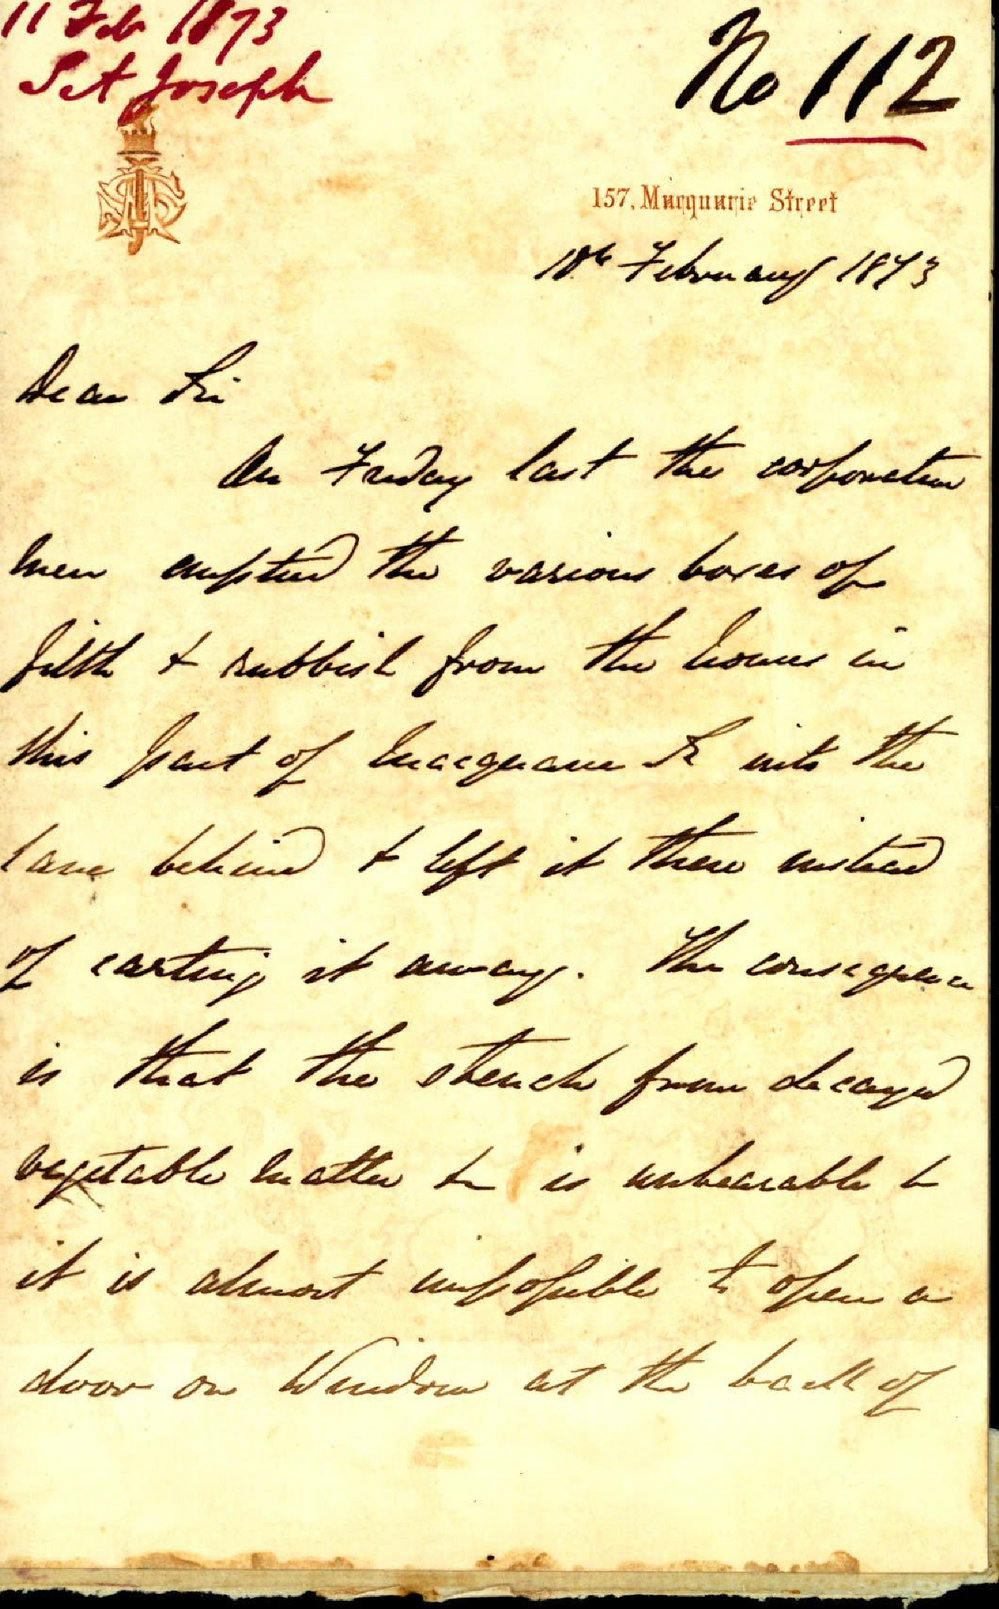 11 Feb 1873
Set Joseph
No 112
157, Macquarie Street
10th February 1873
Dear Sir
On Friday last the corporation
men emptied the various boxes of
filth & rubbish from the houses in
this part of Macquarie St into the
lane behind & left it there instead
of carting it away. The consequence
is that the stench from decayed
vegetable matter &c is unbearable &
it is almost impossible to open a
door or Window at the back of